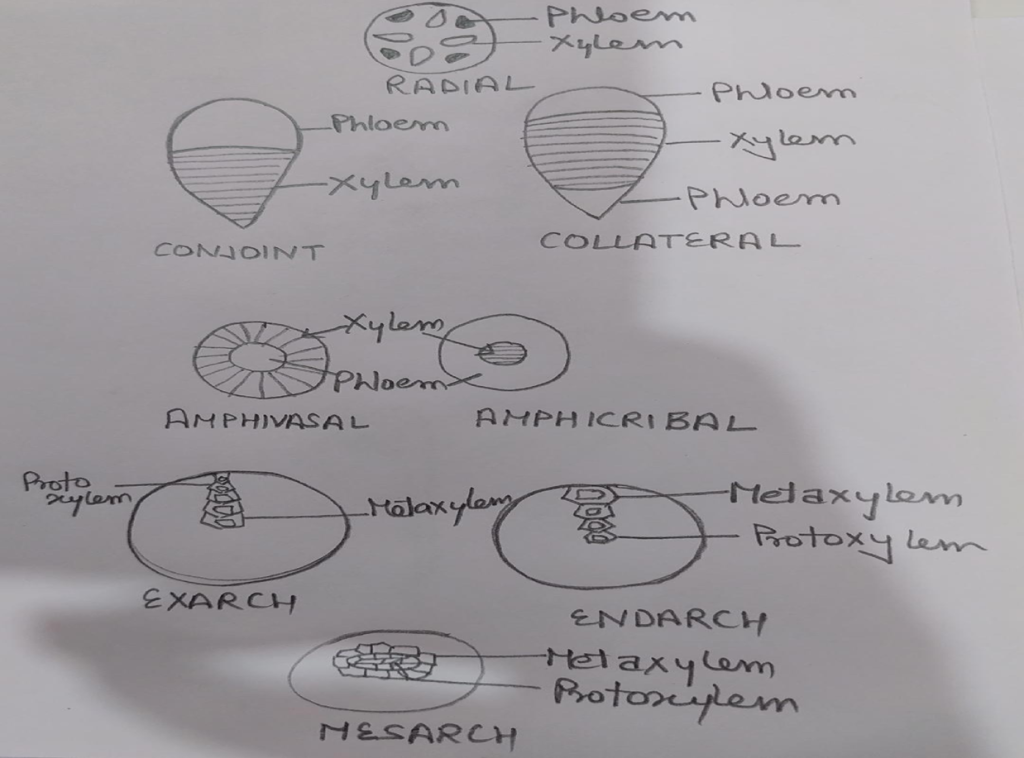 Phloem
Xylem
RADIAL
Phloem
Xylem
CONJOINT
Phloem
Xylem
Phloem
COLLATERAL
Xylem
Phloem
AMPHIVASAL
AMPHICRIBAL
Proto
xylem
Metaxylem
EXARCH
Metaxylem
Protoxylem
ENDARCH
Metaxylem
Protoxylem
MESARCH